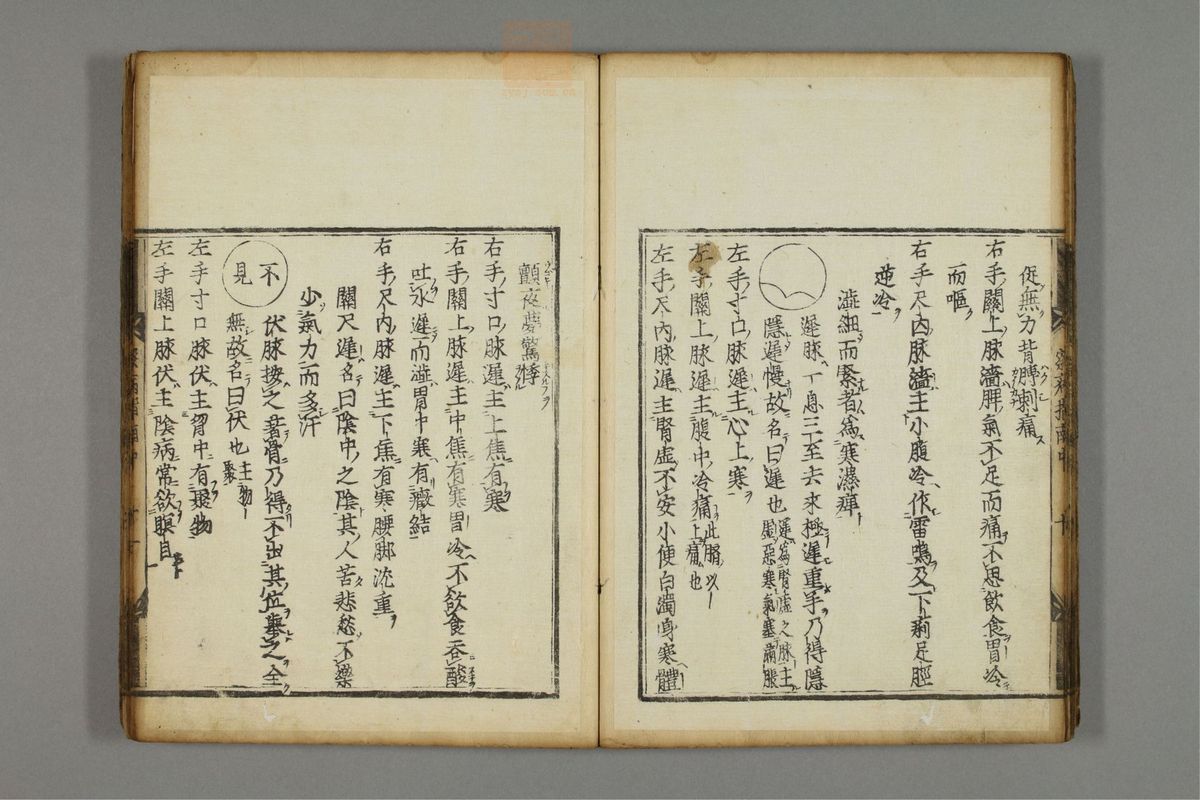 促無力背膊刺痛
右手關上脉濇脾氣不足而痛不思飲食胃冷
而嘔
右手尺内脉濇主小腹冷作雷鳴及下痢足脛
逆冷
濇細而緊者為寒濕痺
遲脉一息三至去來極遲重手乃得隱
隱遲慢故名曰遲也遲為腎虛之脉主
虛惡寒氣塞滿脹
左手寸口脉遲主心上寒
左手關上脉遲主腹中冷痛此腸以
上痛也
左手尺内脉遲主腎虛不安小便白濁身寒體
顫夜夢驚悸
右手寸口脉遲主上焦有寒
右手關上脉遲主中焦有寒胃冷不欲食吞酸
吐水遲而濇胃中寒有癥結
右手尺内脉遲主下焦有寒腰脚沈重
關尺遲名曰陰中之陰其人苦悲愁不樂
少氣力而多汗
不見
伏脉按之著骨乃得不出其位舉之全
無故名曰伏也主物
聚
左手寸口脉伏主胷中有聚物
左手關上脉伏主陰病常欲瞑目